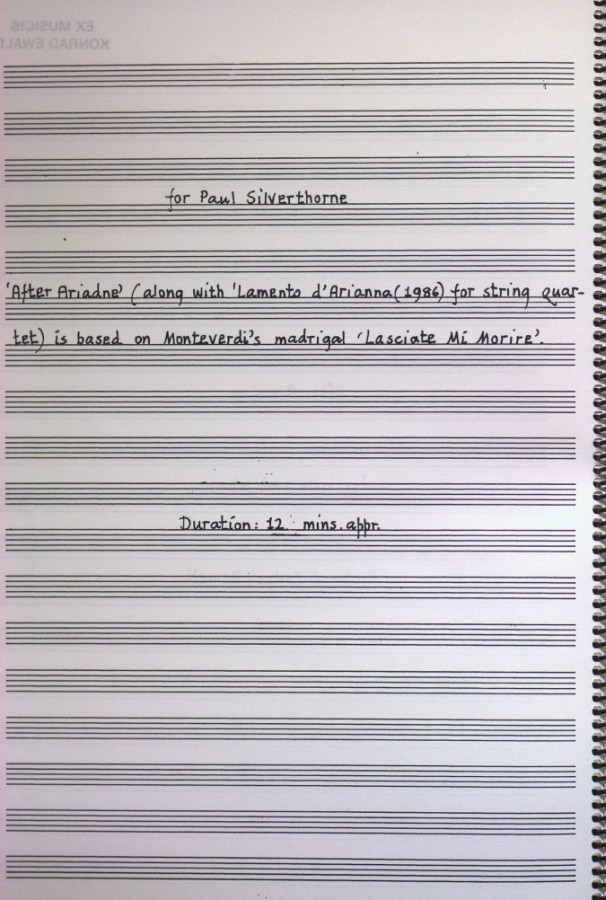 EX MUSICIS
KONRAD EWALD
for Paul Silverthorne
'After Ariadne' (along with 'Lamento d'Arianna(1986) for string quar-
tet) is based on Monteverdi's madrigal 'Lasciate Mi Morire'.
Duration: 12 mins. appr.